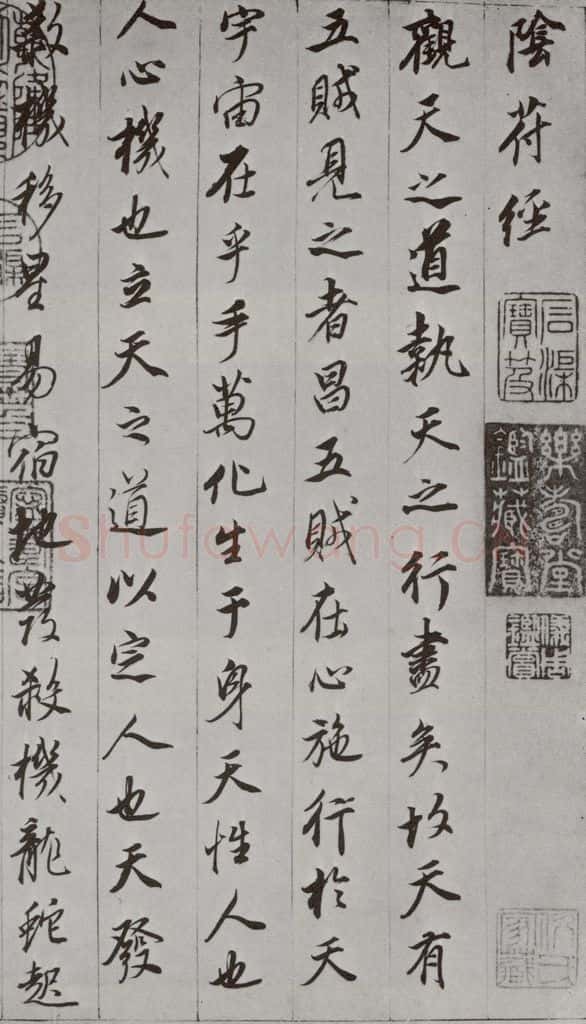 陰符經
觀天之道執天之行盡矣故天有
五賊見之者昌五賊在心施行於天
宇宙在乎手萬化生于身天性人也
人心機也立天之道以定人也天發
殺機移星易宿地發殺機龍蛇起
樂壽堂
鑑藏寶
儀周
鑑賞
Shufawang.cn